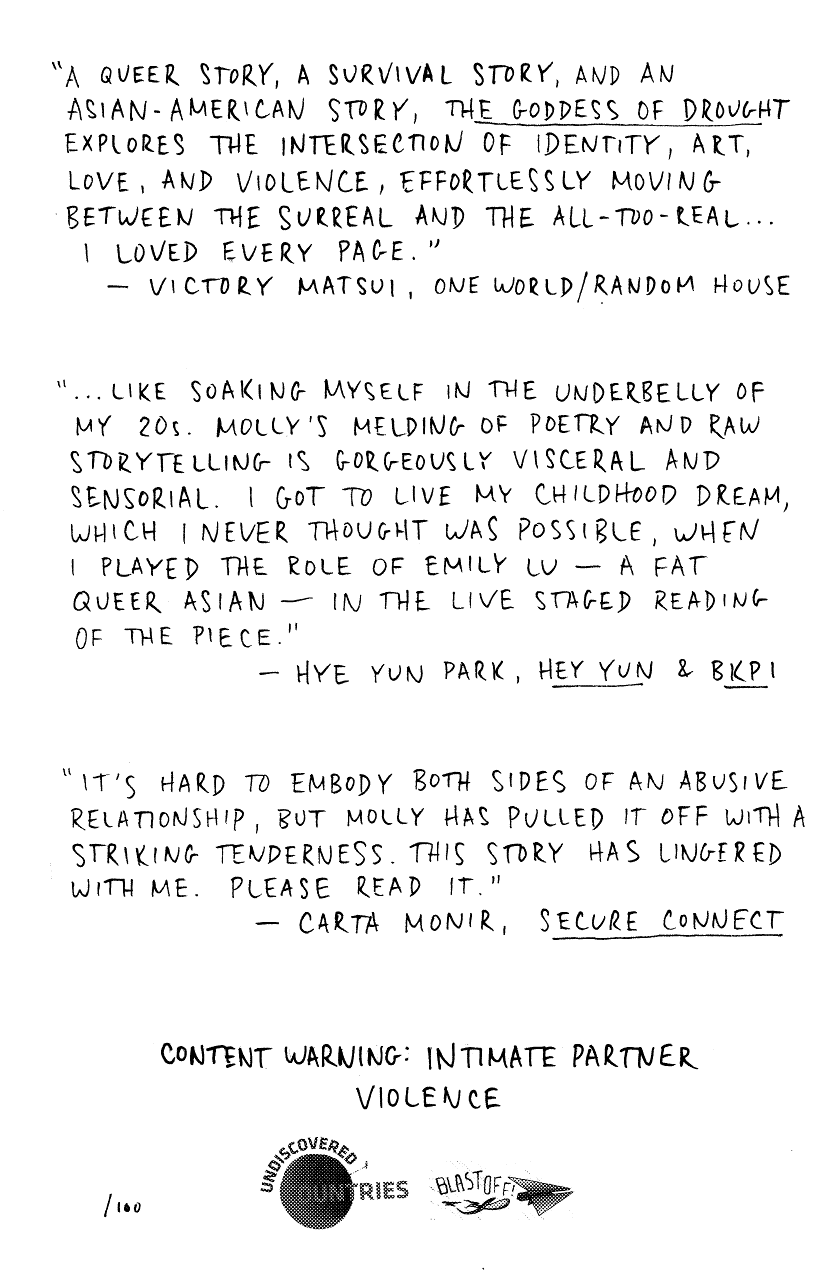 "A QUEER STORY, A SURVIVAL STORY, AND AN
ASIAN-AMERICAN STORY, THE GODDESS OF DROUGHT
EXPLORES THE INTERSECTION OF IDENTITY, ART,
LOVE, AND VIOLENCE, EFFORTLESSLY MOVING
BETWEEN THE SURREAL AND THE ALL-TOO-REAL...
I LOVED EVERY PAGE."
— VICTORY MATSUI, ONE WORLD/RANDOM HOUSE
"...LIKE SOAKING MYSELF IN THE UNDERBELLY OF
MY 20s. MOLLY'S MELDING OF POETRY AND RAW
STORYTELLING IS GORGEOUSLY VISCERAL AND
SENSORIAL. I GOT TO LIVE MY CHILDHOOD DREAM,
WHICH I NEVER THOUGHT WAS POSSIBLE, WHEN
I PLAYED THE ROLE OF EMILY LU — A FAT
QUEER ASIAN — IN THE LIVE STAGED READING
OF THE PIECE."
— HYE YUN PARK, HEY YUN & BKPI
"IT'S HARD TO EMBODY BOTH SIDES OF AN ABUSIVE
RELATIONSHIP, BUT MOLLY HAS PULLED IT OFF WITH A
STRIKING TENDERNESS. THIS STORY HAS LINGERED
WITH ME. PLEASE READ IT."
— CARTA MONIR, SECURE CONNECT
CONTENT WARNING: INTIMATE PARTNER
VIOLENCE
UNDISCOVERED
COUNTRIES
BLASTOFF!
/100